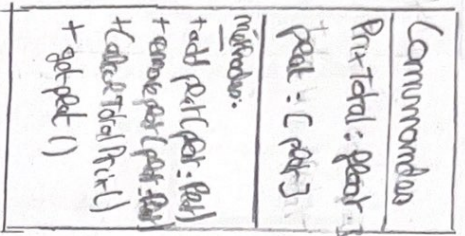 Commandes
PrixTotal : float
plat : [plat]
méthodes :
+ add plat (plat : Plat)
+ remove plat (plat : Plat)
+ CalculTotalPrix()
+ get plat ()